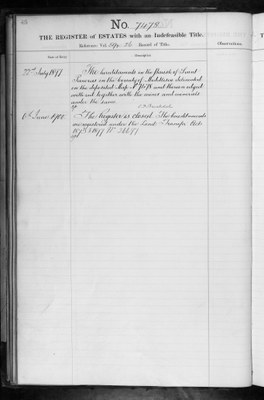 No. 7478
THE REGISTER of ESTATES with an Indefeasible Title.
Reference: Vol. Record of Title.
Date of Entry. Description. Observations.
22nd July 1877 The hereditaments in the Parish of Saint
Pancras in the County of Middlesex delineated
on the deposited Map No. 7478 and thereon edged
with red together with the mines and minerals
under the same
6th June 1901 The Register is closed. The hereditaments
are registered under the Land Transfer Acts
1875 & 1897 No.